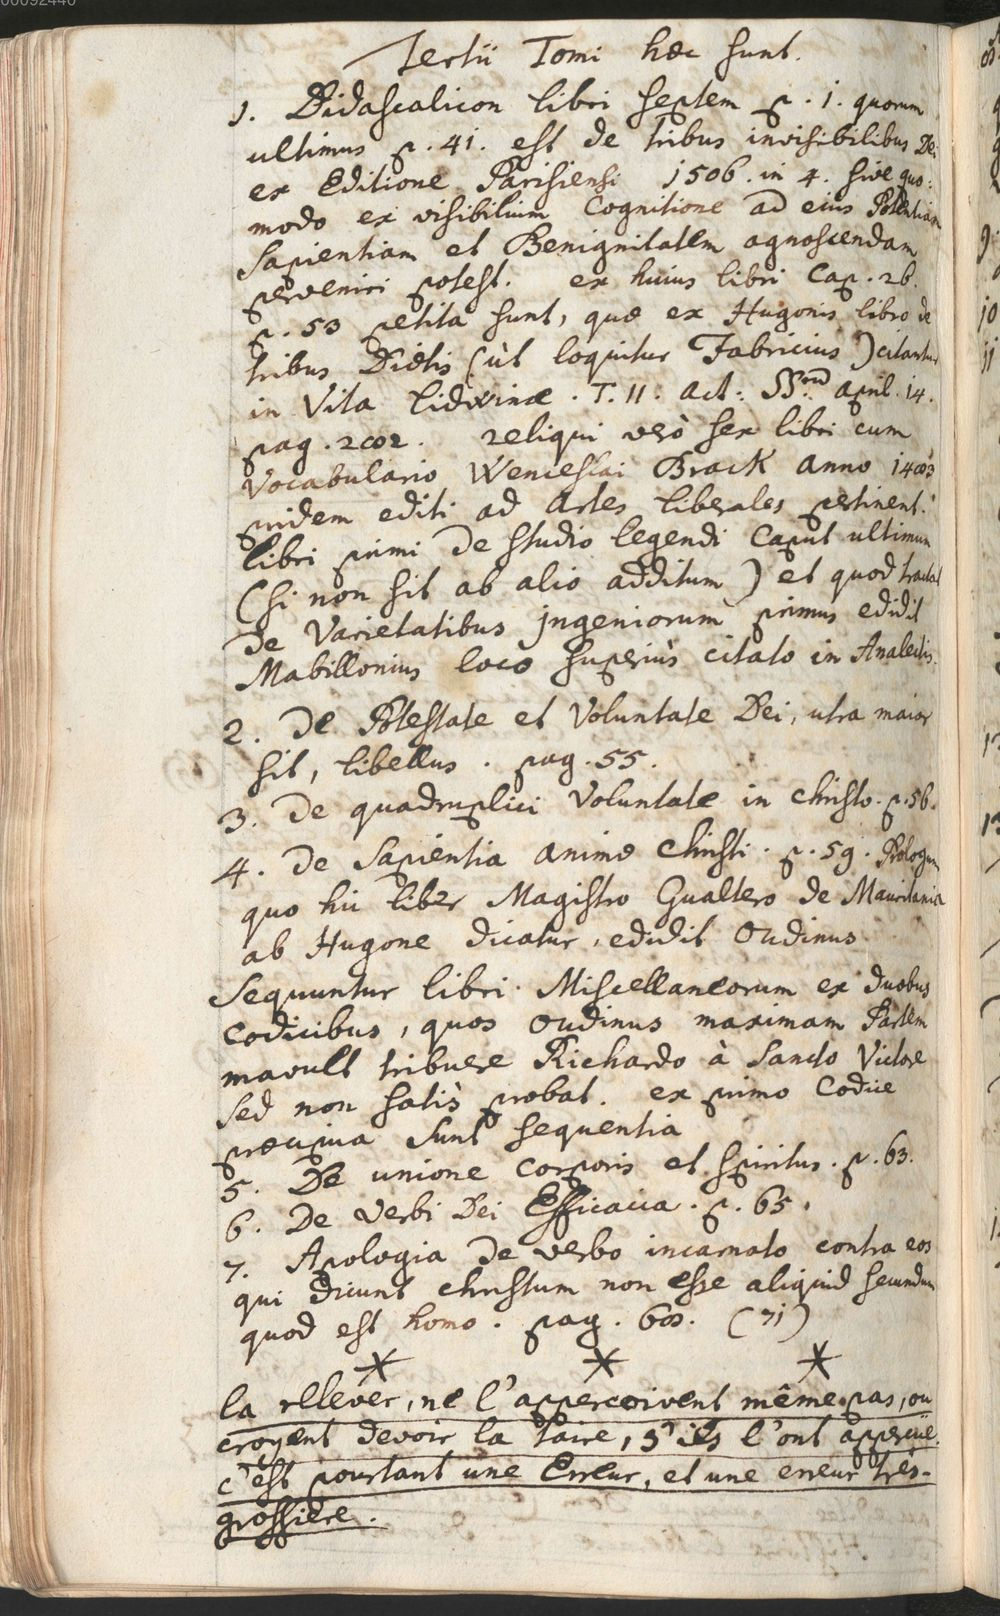 00092440
Tertii Tomi hæc sunt.
1. Didascalicon libri septem p. 1. quorum
ultimus p. 41. est de tribus invisibilibus Dei
ex Editione Parisiensi 1506. in 4. sive quo:
modo ex visibilium Cognitione ad eius Potentiam
Sapientiam et Benignitatem agnoscendam
perveniri potest. ex huius libri Cap. 26.
p. 53 petita sunt, quæ ex Hugonis libro de
tribus Dietis (ùt loquitur Fabricius) citantur
in Vita Lidwinæ. T. II. act: SS.rum april. 14.
pag. 282. reliqui verò sex libri cum
Vocabulario Wenceslai Brack anno 1483
pridem editi ad Artes liberales pertinent.
libri primi De studio legendi Caput ultimum
(si non sit ab alio additum) et quod tractat
de Varietatibus jngeniorum primus edidit
Mabillonius loco superiùs citato in Analectis.
2. De Potestate et Voluntate Dei, utra maior
sit, libellus. pag. 55.
3. De quadruplici Voluntate in christo. p. 56.
4. De Sapientia animæ Christi. p. 59. Prologum
quo hic liber Magistro Gualtero de Mauritania
ab Hugone dicatur, edidit Oudinus
Sequuntur libri Miscellaneorum ex duobus
Codicibus, quos Oudinus maximam Partem
mavult tribuere Richardo à Sancto Victore
Sed non satis probat. ex primo Codice
præcipua sunt sequentia
5. De unione corporis et spiritus. p. 63.
6. De Verbi Dei Efficacia. p. 65.
7. Apologia De verbo incarnato contra eos
qui dicunt christum non esse aliquid secundum
quod est homo. pag. 68. (71)
* * *
la rellever, ne l'apperçoivent même pas, ou
croyent devoir la taire, s'ils l'ont apperçüe.
c'est pourtant une Erreur, et une erreur très-
grossiere.